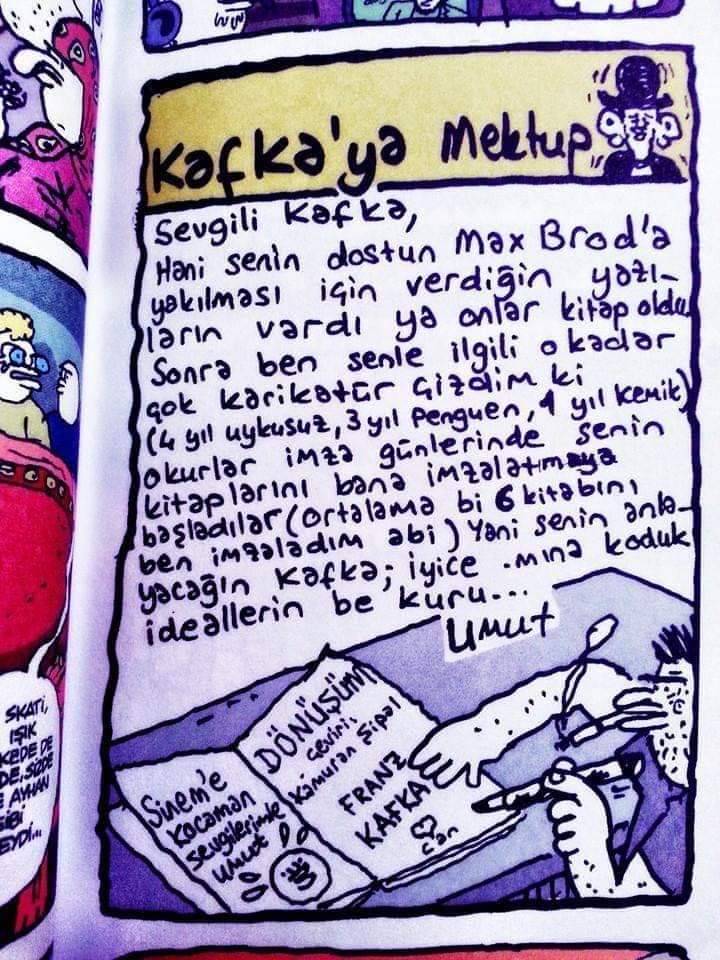 Kafka'ya Mektup
Sevgili Kafka,
Hani senin dostun Max Brod'a
yakılması için verdiğin yazı-
ların vardı ya onlar kitap oldu
Sonra ben senle ilgili o kadar
çok karikatür çizdim ki
(4 yıl uykusuz, 3 yıl Penguen, 1 yıl Kemik)
okurlar imza günlerinde senin
kitaplarını bana imzalatmaya
başladılar (ortalama bi 6 kitabını
ben imzaladım abi) Yani senin anla-
yacağın Kafka; iyice .mına koduk
ideallerin be kuru...
Umut
DÖNÜŞÜM
çeviri,
Kâmuran Şipal
FRANZ
KAFKA
Can
Sinem'e
Kocaman
sevgilerimle
Umut
SKATI,
IŞIK
DE, SİZDE
AYHAN
EYDİ...